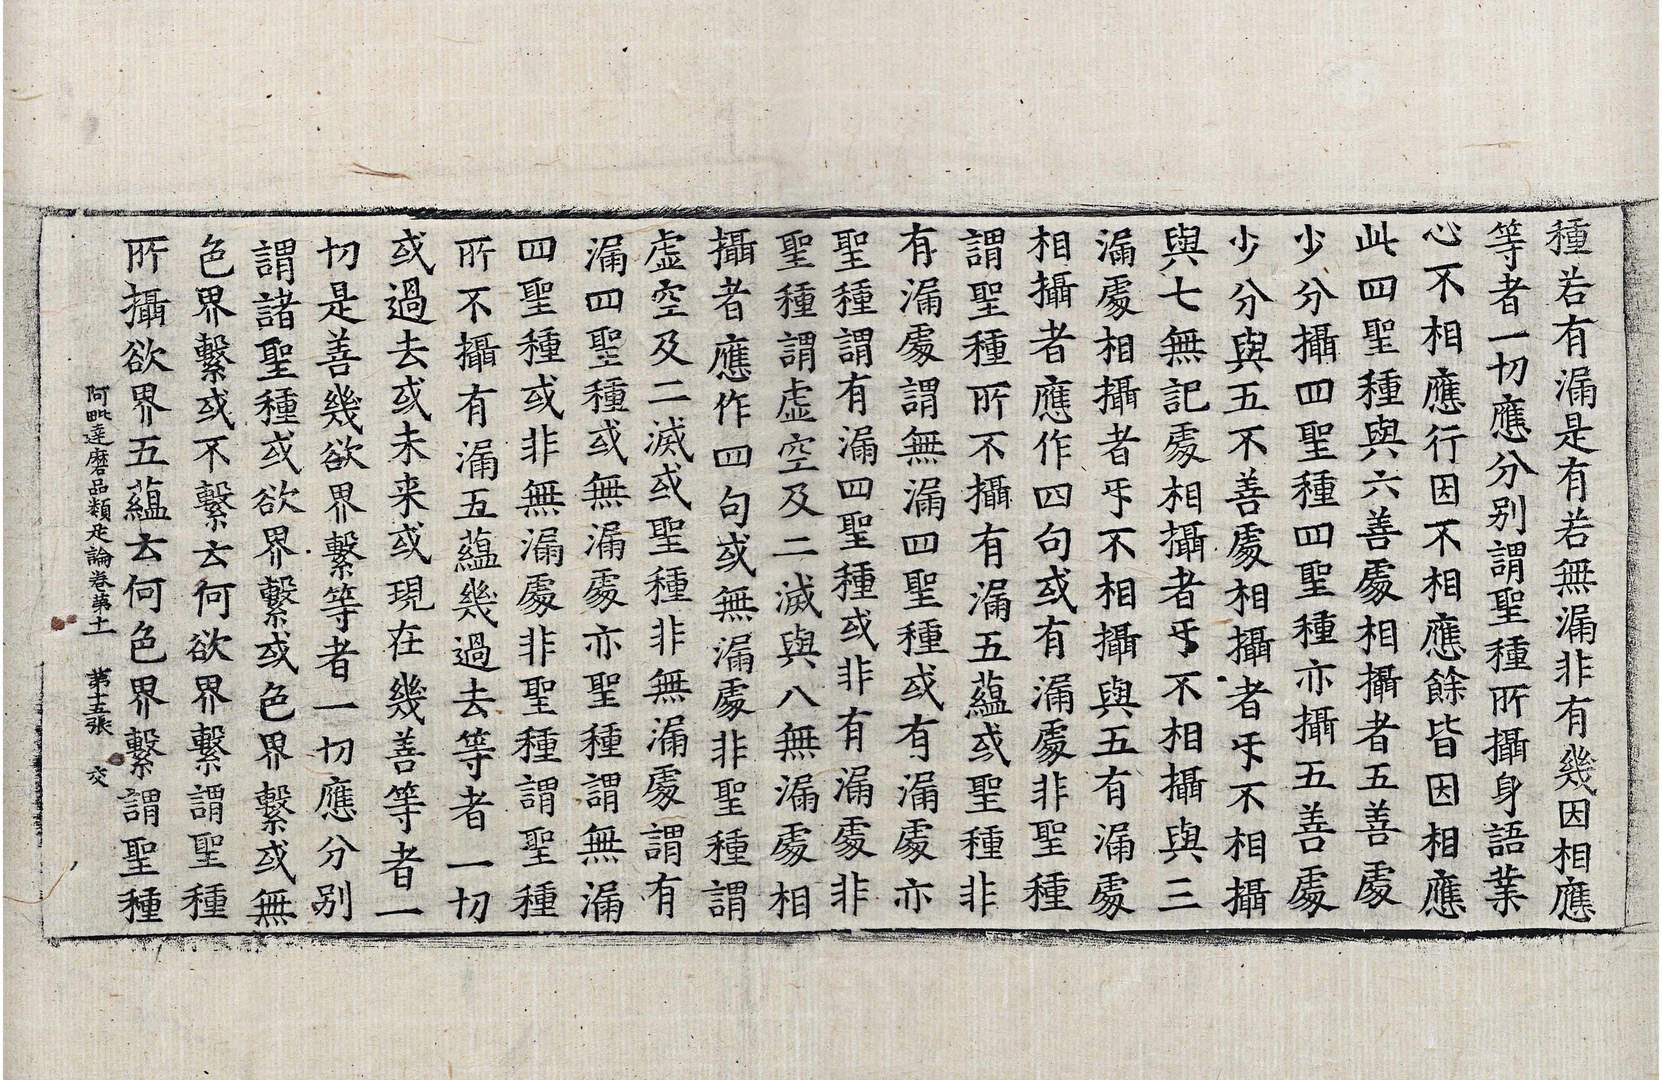 種若有漏是有若無漏非有幾因相應
等者一切應分別謂聖種所攝身語業
心不相應行因不相應餘皆因相應
此四聖種與六善處相攝者五善處
少分攝四聖種四聖種亦攝五善處
少分與五不善處相攝者𠀤不相攝
與七無記處相攝者𠀤不相攝與三
漏處相攝者𠀤不相攝與五有漏處
相攝者應作四句或有漏處非聖種
謂聖種所不攝有漏五蘊或聖種非
有漏處謂無漏四聖種或有漏處亦
聖種謂有漏四聖種或非有漏處非
聖種謂虛空及二滅與八無漏處相
攝者應作四句或無漏處非聖種謂
虛空及二滅或聖種非無漏處謂有
漏四聖種或無漏處亦聖種謂無漏
四聖種或非無漏處非聖種謂聖種
所不攝有漏五蘊幾過去等者一切
或過去或未来或現在幾善等者一
切是善幾欲界繫等者一切應分別
謂諸聖種或欲界繫或色界繫或無
色界繫或不繫云何欲界繫謂聖種
所攝欲界五蘊云何色界繫謂聖種
阿毗達磨品類足論卷第十一　第十五張　交